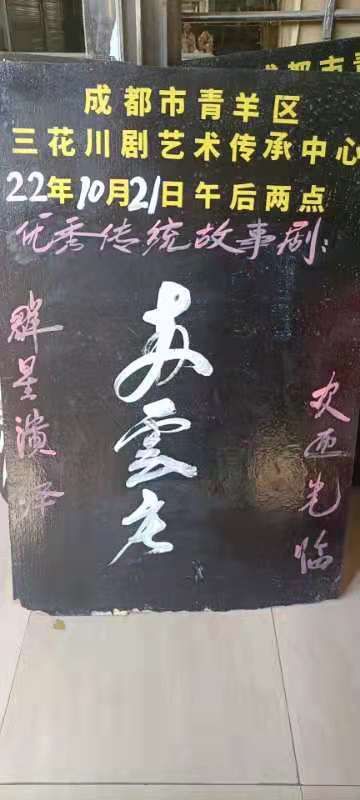 成都市青
成都市青羊区
三花川剧艺术传承中心
22年10月21日午后两点
优秀传统故事剧:
群星演绎
雲
欢迎光临